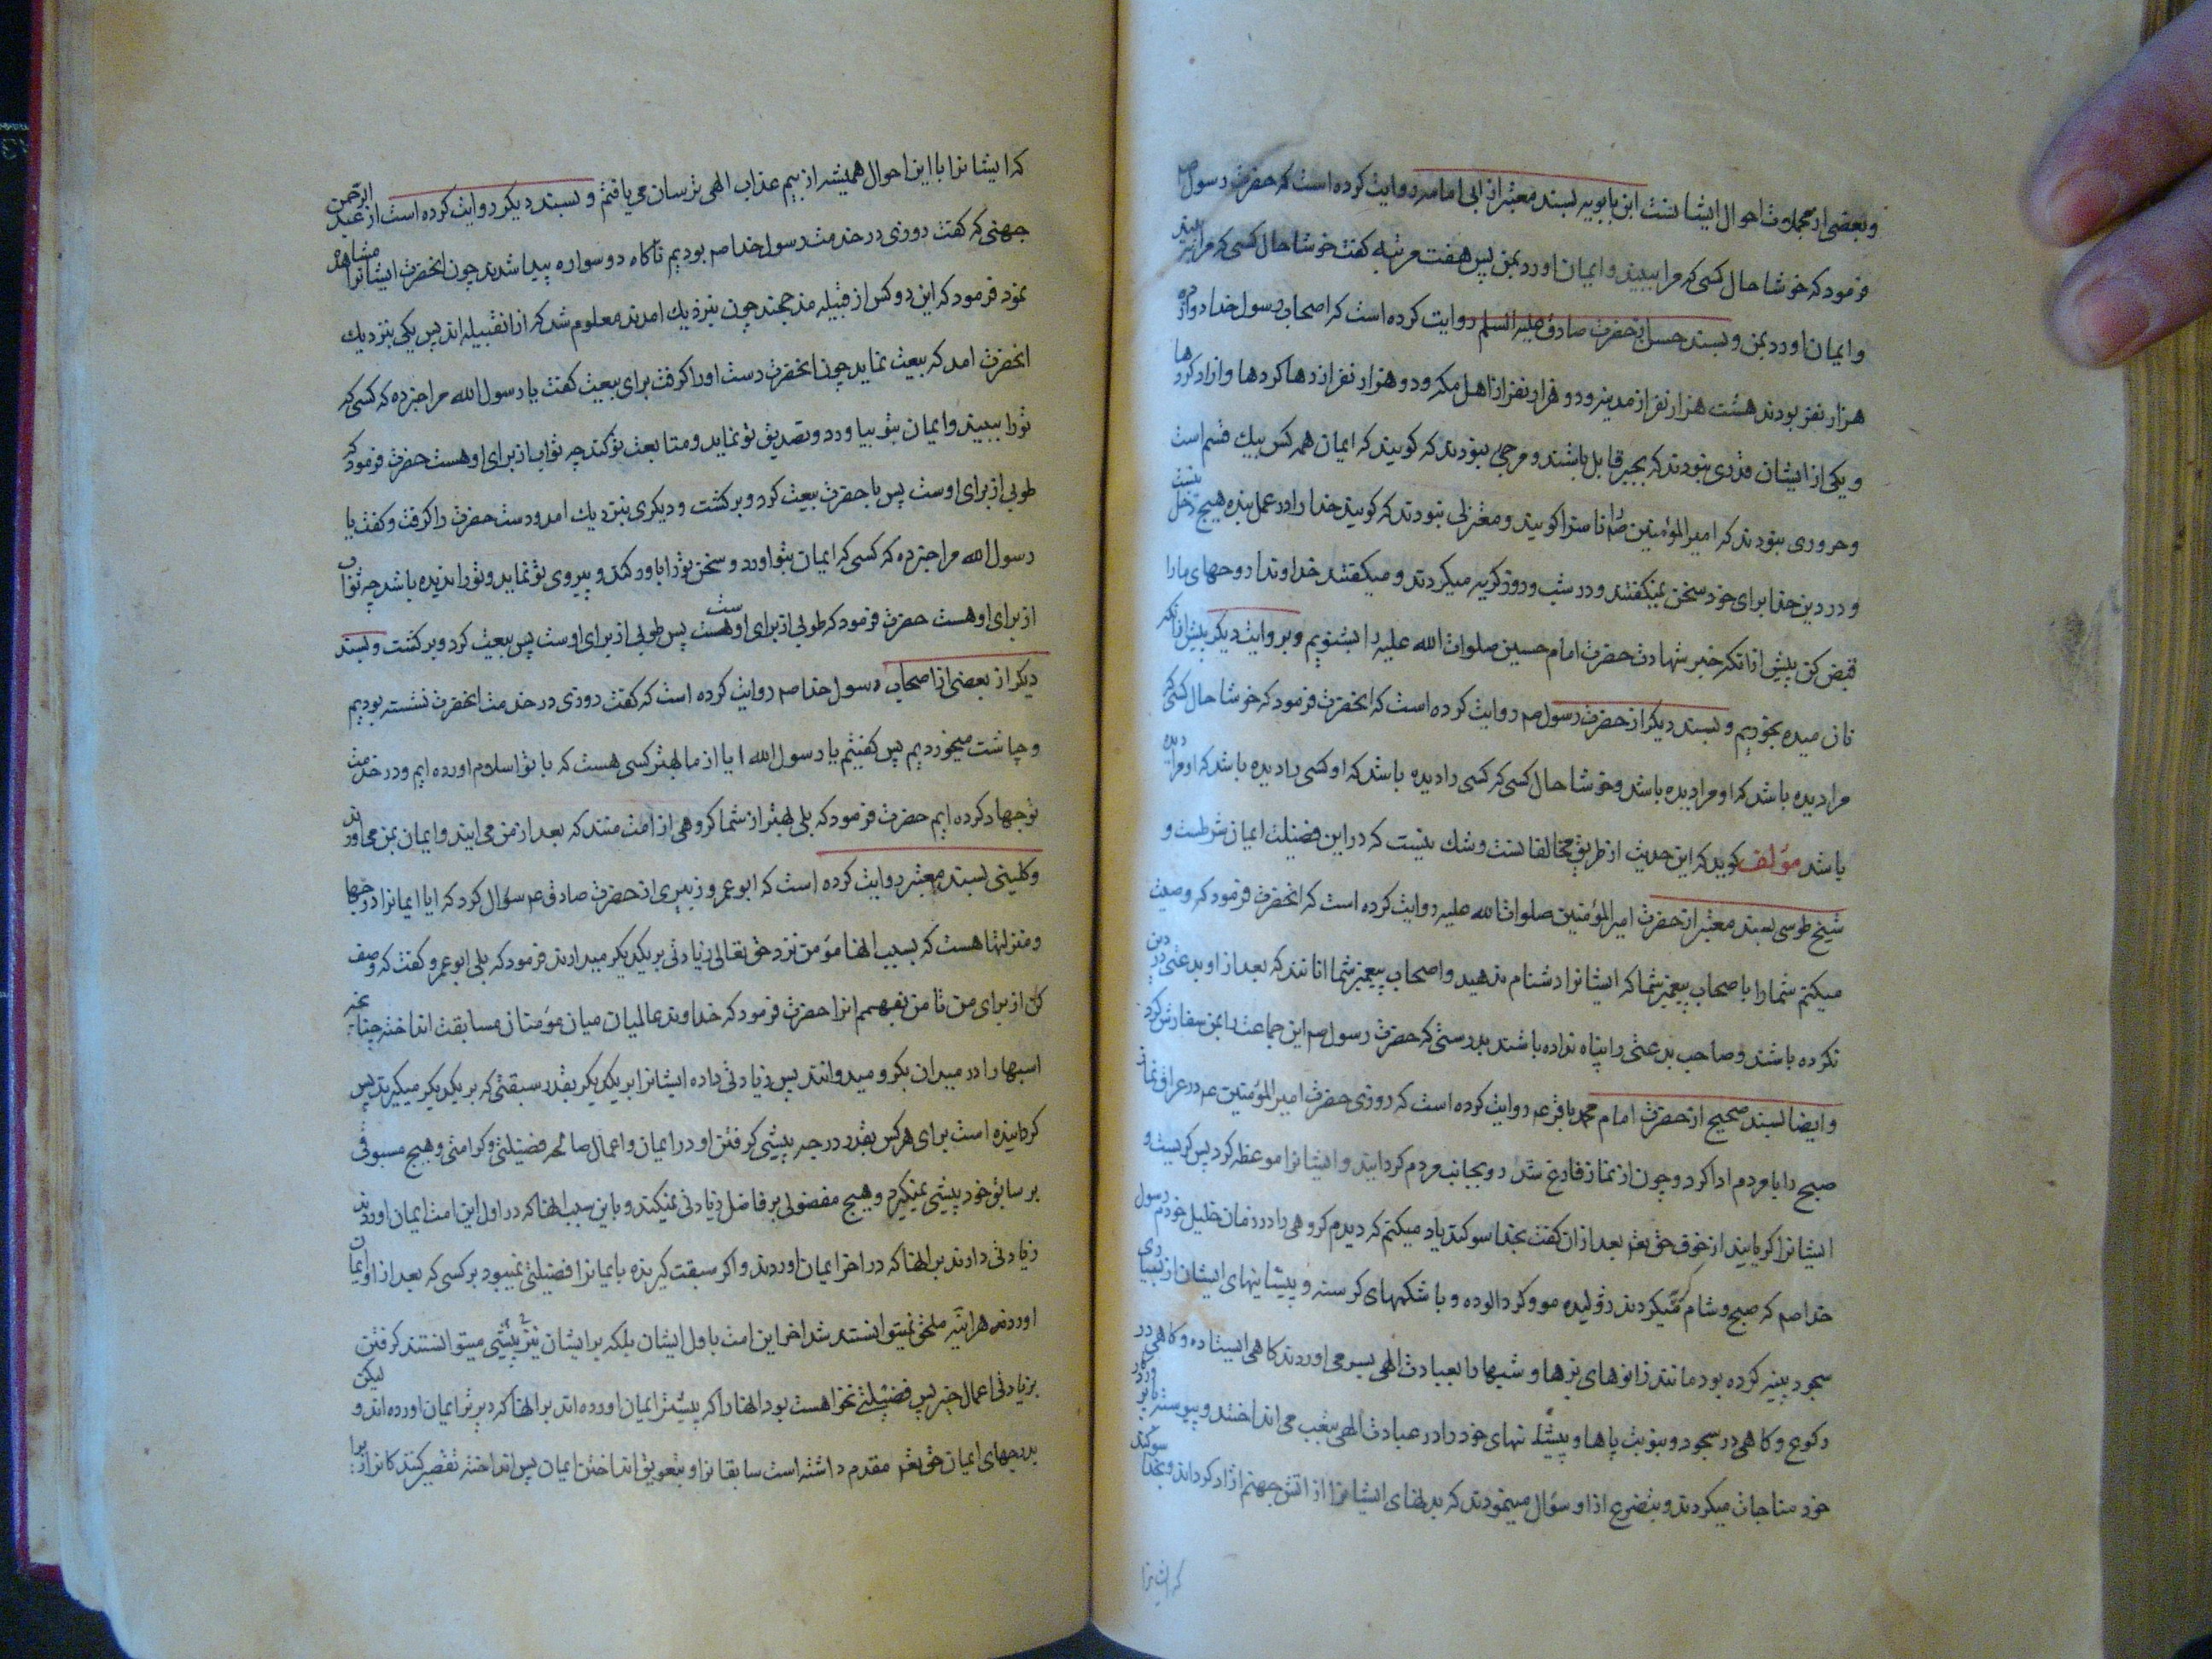 و بعضی از مجملات احوال ایشانست ابن بابویه بسند معتبر از ابی امامه روایت کرده است که حضرت رسول صم
فرمود که خوشا حال کسی که مرا ببیند و ایمان اورد بمن پس هفت مرتبه کفت خوشا حال کسی که مرا نبیند
و ایمان اورد بمن و بسند حسن از حضرت صادق علیه السلم روایت کرده است که اصحاب رسول خدا دوازده
هزار نفر بودند هشت هزار نفر از مدینه و دو هزار نفر از اهل مکه و دو هزار نفر از رها کردها و ازاد کردها
و یکی از ایشان قدری نبودند که بجبر قایل باشند و مرجی نبودند که کویند که ایمان همه کس بیک قسم است
و حروری نبودند که امیر المؤمنین صم را ناسزا کویند و معتزلی نبودند که کویند خدا را در عمل بنده هیچ دخل نیست
و در دین خدا برای خود سخن نمیکفتند و در شب و روز کریه میکردند و میکفتند خداوندا روحهای ما را
قبض کن پیش ازانکه خبر شهادت حضرت امام حسین صلوات الله علیه را بشنویم و بروایت دیکر پیش ازانکه
نان میده بخوریم و بسند دیکر از حضرت رسول صم روایت کرده است که انحضرت فرمود که خوشا حال کسی که
مرا دیده باشد که او مرا دیده باشد و خوشا حال کسی که کسی را دیده باشد که او کسی را دیده باشد که او مرا دیده
باشد مؤلف کوید که این حدیث از طریق مخالفانست و شک نیست که در این فضیلت ایمان شرطست و
شیخ طوسی بسند معتبر از حضرت امیر المؤمنین صلوات الله علیه روایت کرده است که انحضرت فرمود که وصیت
میکنم شما را باصحاب پیغمبر شما که ایشانرا دشنام ندهید و اصحاب پیغمبر شما انانند که بعد از او بدعتی در دین
نکرده باشند و صاحب بدعتی را پناه نداده باشند بدرستی که حضرت رسول صم این جماعت را بمن سفارش کرد
و ایضا بسند صحیح از حضرت امام محمد باقر عم روایت کرده است که روزی حضرت امیر المؤمنین عم در عراق نماز
صبح را با مردم ادا کرد و چون از نماز فارغ شد رو بجانب مردم کردانید و ایشانرا موعظه کرد پس کریست و
ایشانرا کریانید از خوف حق تعم بعد ازان کفت بخدا سوکند یاد میکنم که دیدم کروهی را در زمان خلیل خودم رسول
خدا صم که صبح و شام میکردند ژولیده مو و کرد الوده و با شکمهای کرسنه و پیشانیهای ایشان از بسیاری
سجود پینه کرده بود مانند زانوهای بزها و شبها را بعبادت الهی بسر می اوردند کاهی ایستاده و کاهی در
رکوع و کاهی در سجود و بنوبت پاها و پیشانیهای خود را در عبادت الهی بتعب می انداختند و پیوسته با پروردکار
خود مناجات میکردند و بتضرع از او سؤال مینمودند که بدنهای ایشانرا از اتش جهنم ازاد کرداند و بخدا سوکند
که ایشانرا
که ایشانرا با این احوال همیشه از بیم عذاب الهی ترسان می یافتم و بسند دیکر روایت کرده است از عبد الرحمن
جهنی که کفت روزی در خدمت رسول خدا صم بودیم ناکاه دو سواره پیدا شدند چون انحضرت ایشانرا مشاهده
نمود فرمود که این دو کس از قبیله مذحجند چون بنزدیک امدند معلوم شد که ازانقبیله اند پس یکی بنزدیک
انحضرت امد که بیعت نماید چون انحضرت دست او را کرفت برای بیعت کفت یا رسول الله مرا خبر ده که کسی که
تو را ببیند و ایمان بتو بیاورد و تصدیق تو نماید و متابعت تو کند چه ثواب از برای او هست حضرت فرمود که
طوبی از برای اوست پس با حضرت بیعت کرد و برکشت و دیکری بنزدیک امد و دست حضرت را کرفت و کفت یا
رسول الله مرا خبر ده که کسی که ایمان بتو اورد و سخن تو را باور کند و پیروی تو نماید و تو را ندیده باشد چه ثواب
از برای او هست حضرت فرمود که طوبی از برای اوست پس طوبی از برای اوست پس بیعت کرد و برکشت و بسند
دیکر از بعضی از اصحاب رسول خدا صم روایت کرده است که کفت روزی در خدمت انحضرت نشسته بودیم
و چاشت میخوردیم پس کفتیم یا رسول الله ایا از ما بهتر کسی هست که با تو اسلام اورده ایم و در خدمت
تو جهاد کرده ایم حضرت فرمود که بلی بهتر از شما کروهی از امت منند که بعد از من می ایند و ایمان بمن می اورند
و کلینی بسند معتبر روایت کرده است که ابو عمرو زبیری از حضرت صادق عم سؤال کرد که ایا ایمانرا درجها
و منزلتها هست که بسبب انها مؤمن نزد حق تعالی زیادتی بر یکدیکر میدارند فرمود که بلی ابو عمرو کفت که وصف
کن از برای من تا من بفهمم انرا حضرت فرمود که خداوند عالمیان میان مؤمنان مسابقت انداخته چنانچه
اسبها را در میدان بکرو میدوانند پس زیادتی داده ایشانرا بر یکدیکر بقدر سبقتی که بر یکدیکر میکیرند پس
کردانیده است برای هر کس بقدر درجه پیشی کرفتن او در ایمان و اعمال صالحه فضیلتی و کرامتی و هیچ مسبوقی
بر سابق خود پیشی نمیکیرد و هیچ مفضولی بر فاضل زیادتی نمیکند و باین سبب انها که در اول این امت ایمان اوردند
زیادتی دارند بر انها که در اخر ایمان اوردند و اکر سبقت کیرنده بایمانرا فضیلتی نمیبود بر کسی که بعد از او ایمان
اوردند هراینه ملحق میتوانستند شد اخر این امت باول ایشان بلکه بر ایشان نیز پیشی میتوانستند کرفتن
بزیادتی اعمال خیر پس فضیلتی نخواهست بود انها را که پیشتر ایمان اورده اند بر انها که دیرتر ایمان اورده اند و لیکن
بدرجهای ایمان حق تعم مقدم داشته است سابقانرا و بتعویق انداختن ایمان پس انداخته تقصیر کنندکانرا زیرا